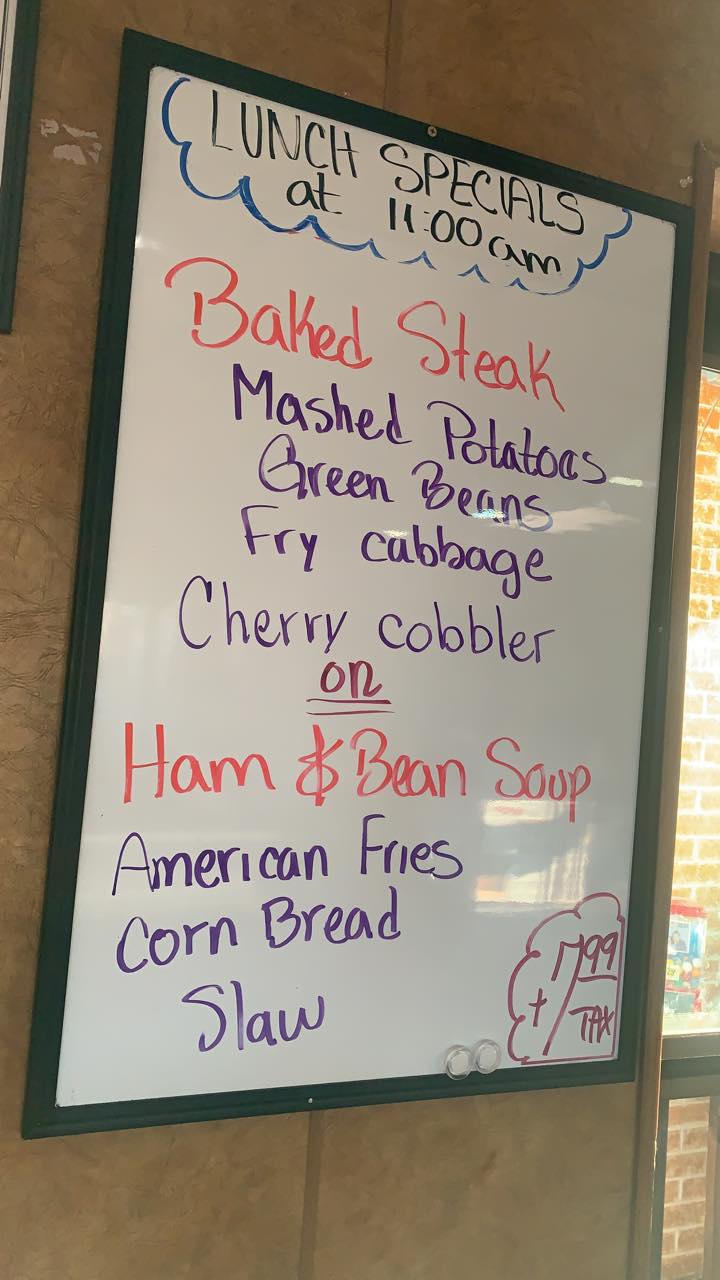 LUNCH SPECIALS
at 11:00 am
Baked Steak
Mashed Potatoes
Green Beans
Fry cabbage
Cherry cobbler
or
Ham & Bean Soup
American Fries
Corn Bread
Slaw
799
+ / TAX